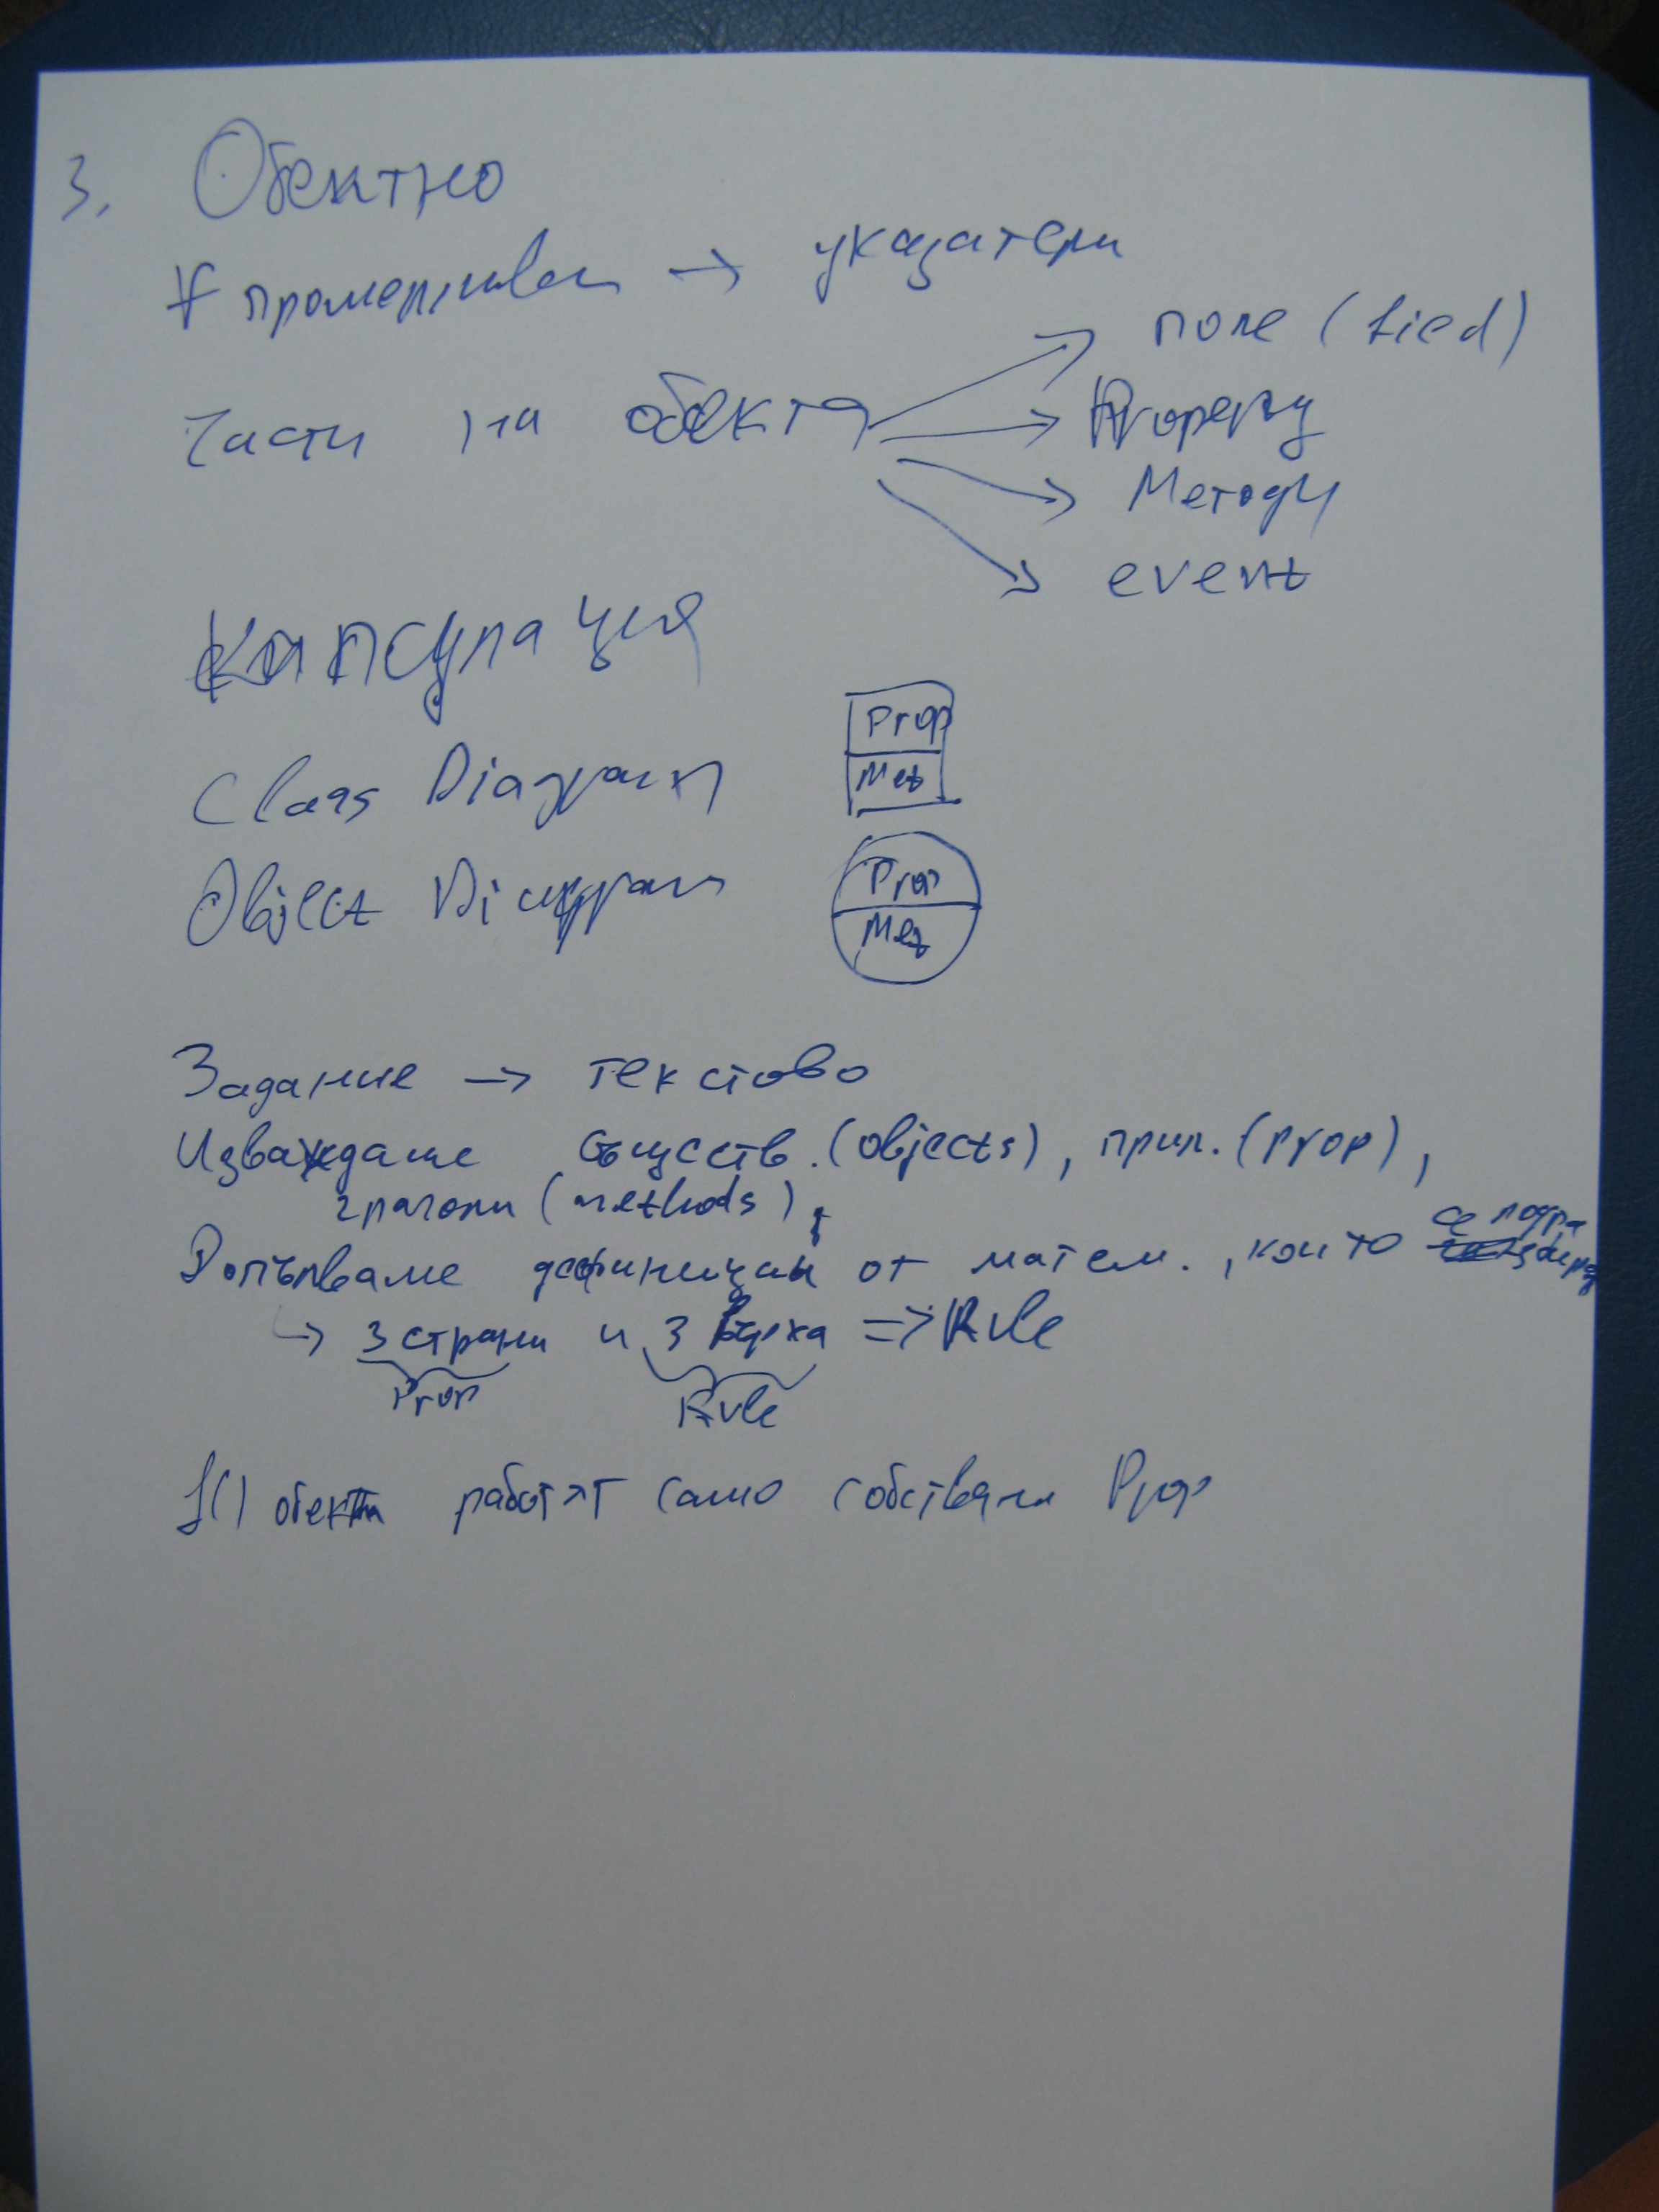 3. Обектно
∀ променливи → указатели
Части на обекта → поле (fied)
→ Property
→ Методи
→ event
Капсулация
Class Diagram
Prop
Met
Object Diagram
Prop
Met
Задание → текстово
Изваждаме съществ. (objects), прил. (prop),
глаголи (methods),
Допълваме дефиниции от матем., които се подра
збира
→ 3 страни и 3 ъгъла => Rule
Prop
Rule
f() обекти работят само собствени Prop